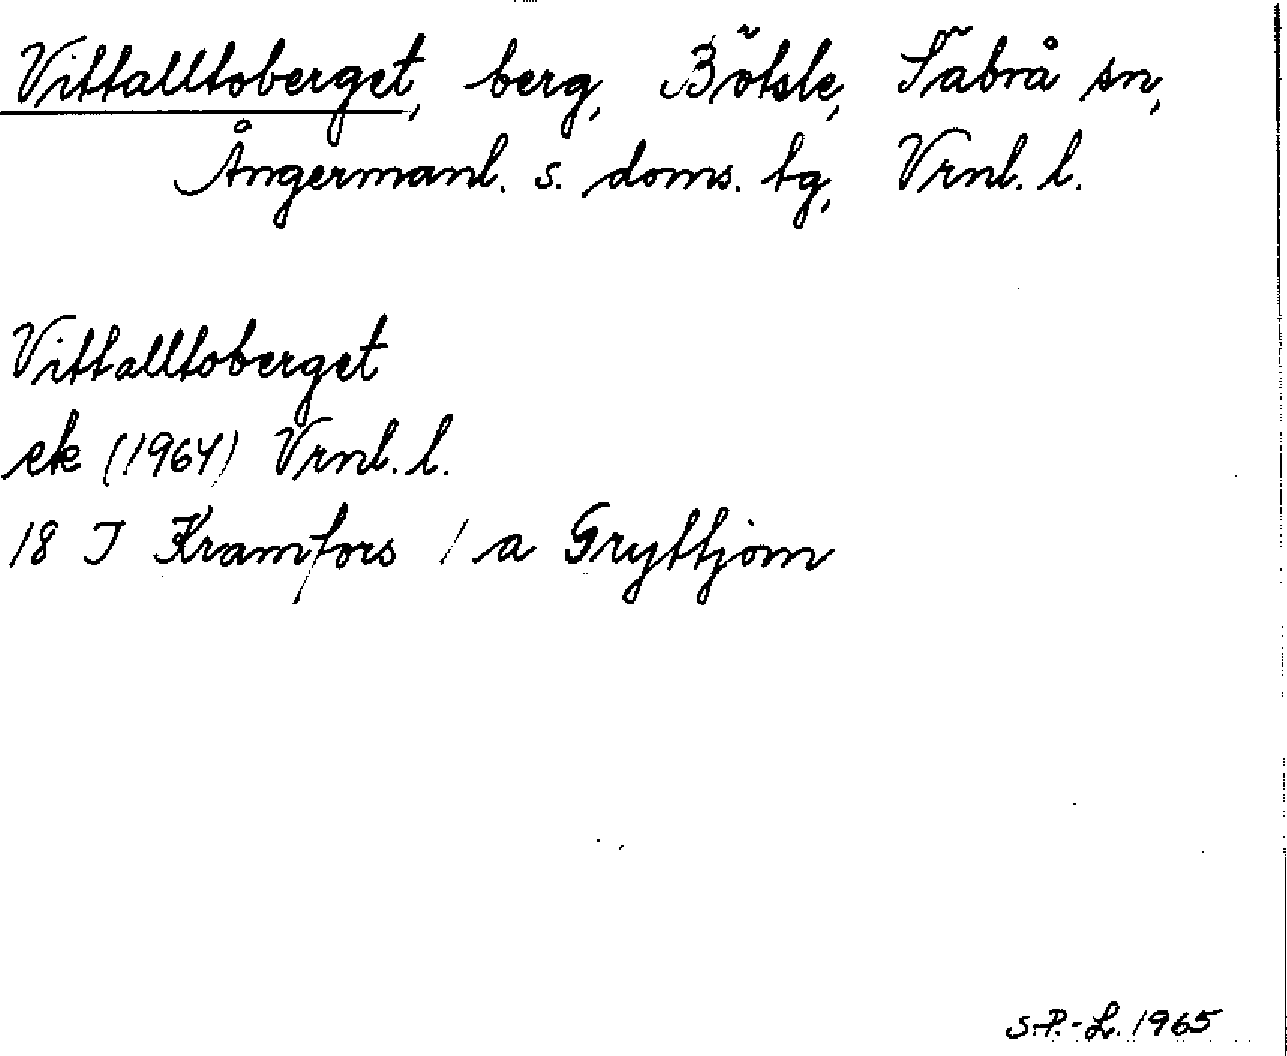 Vittalltoberget, berg, Bötsle, Säbrå sn,
Ångermanl. s. doms. tg, Vrnl. l.
Vittalltoberget
ek (1964) Vrnl. l.
18 I Kramfors 1 a Gryttjom
S.P.-L. 1965